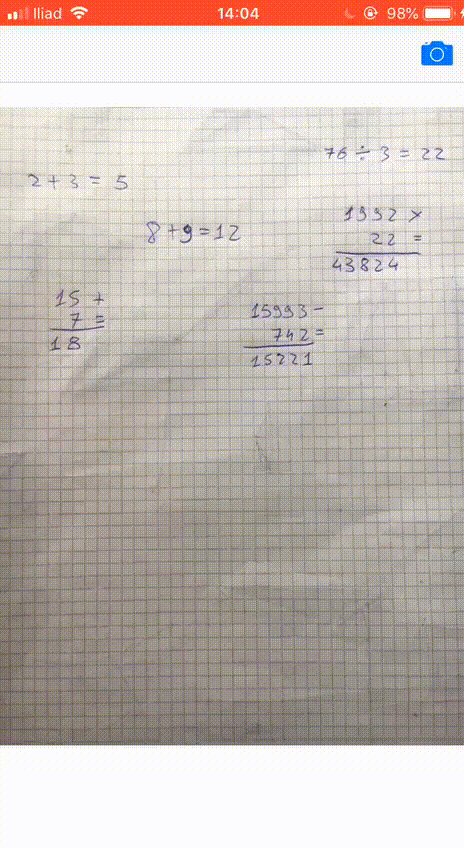 Iliad 14:04 98%
76 ÷ 3 = 22
2 + 3 = 5
8 + 9 = 12
1992 ×
22 =
43824
15 +
7 =
18
15993 -
742 =
15221